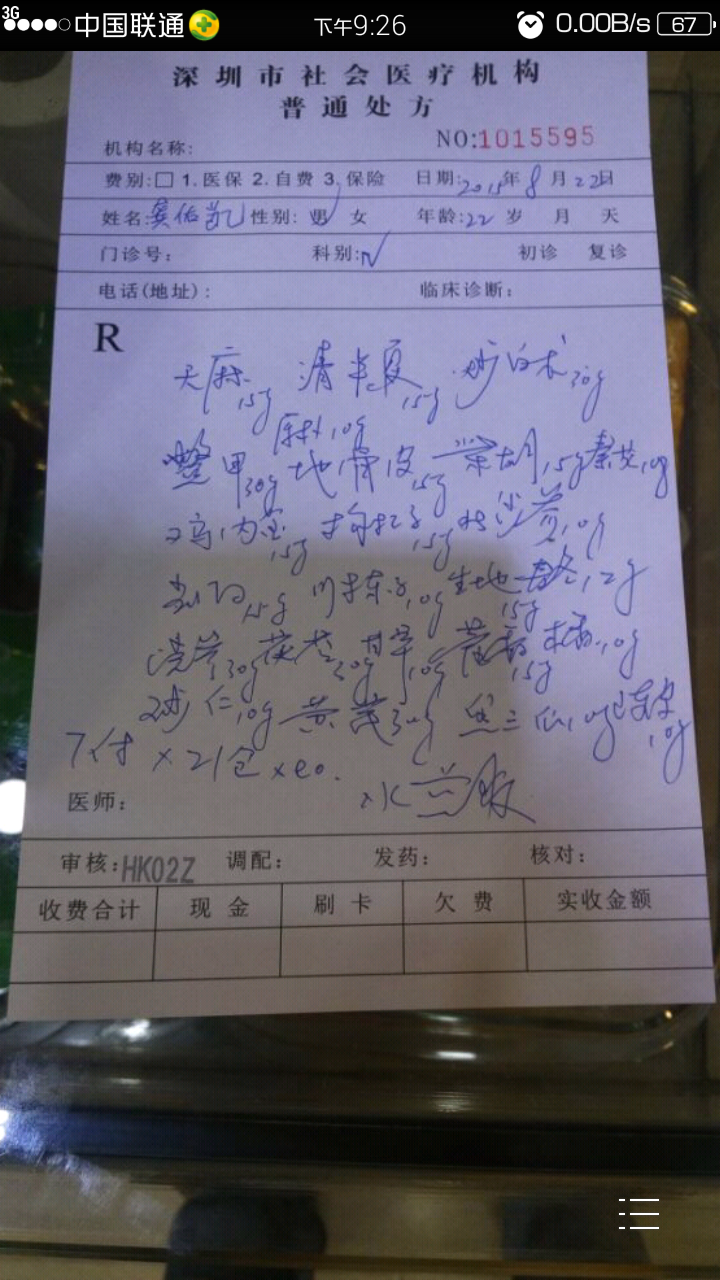 3G
中国联通 下午9:26 0.00B/s 67
深圳市社会医疗机构
普通处方
机构名称: NO:1015595
费别:□ 1.医保 2.自费 3.保险 日期:2015年8月22日
姓名: 性别: 男 女 年龄:22岁 月 天
门诊号: 科别: 初诊 复诊
电话(地址): 临床诊断:
R
天麻15g 清半夏15g 炒白术30g
10g
鳖甲30g 地骨皮15g 柴胡15g 秦艽10g
鸡内金15g 枸杞子15g 北沙参10g
当归15g 川楝子10g 生地15g 12g
党参30g 茯苓30g 甘草10g 15g 10g
砂仁10g 黄芪30g 10g 10g
7付×21包×
水煎服
医师:
审核:HK02Z 调配: 发药: 核对:
收费合计 现金 刷卡 欠费 实收金额